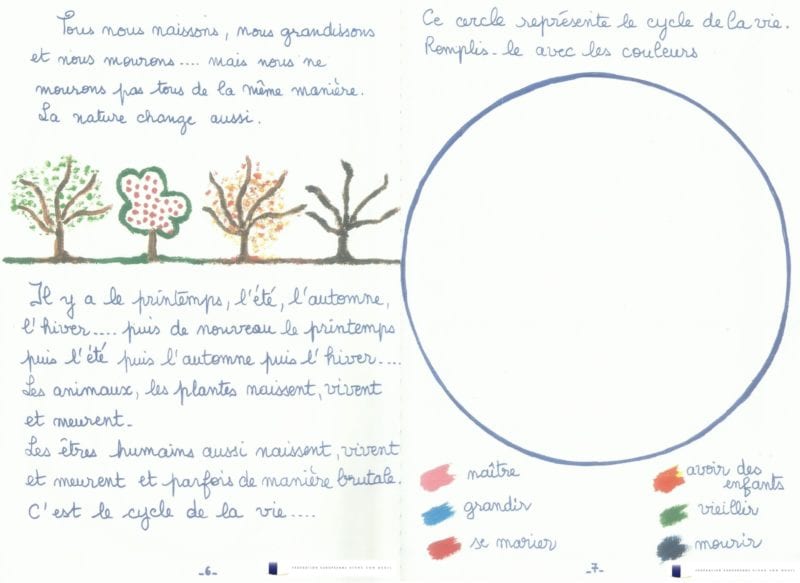 Tous nous naissons, nous grandissons
et nous mourons.... mais nous ne
mourons pas tous de la même manière.
La nature change aussi.
Il y a le printemps, l'été, l'automne,
l'hiver.... puis de nouveau le printemps
puis l'été puis l'automne puis l'hiver....
Les animaux, les plantes naissent, vivent
et meurent.
Les êtres humains aussi naissent, vivent
et meurent et parfois de manière brutale.
C'est le cycle de la vie....
_6_
Ce cercle représente le cycle de la vie.
Remplis-le avec les couleurs
naître
grandir
se marier
avoir des
enfants
vieillir
mourir
_7_